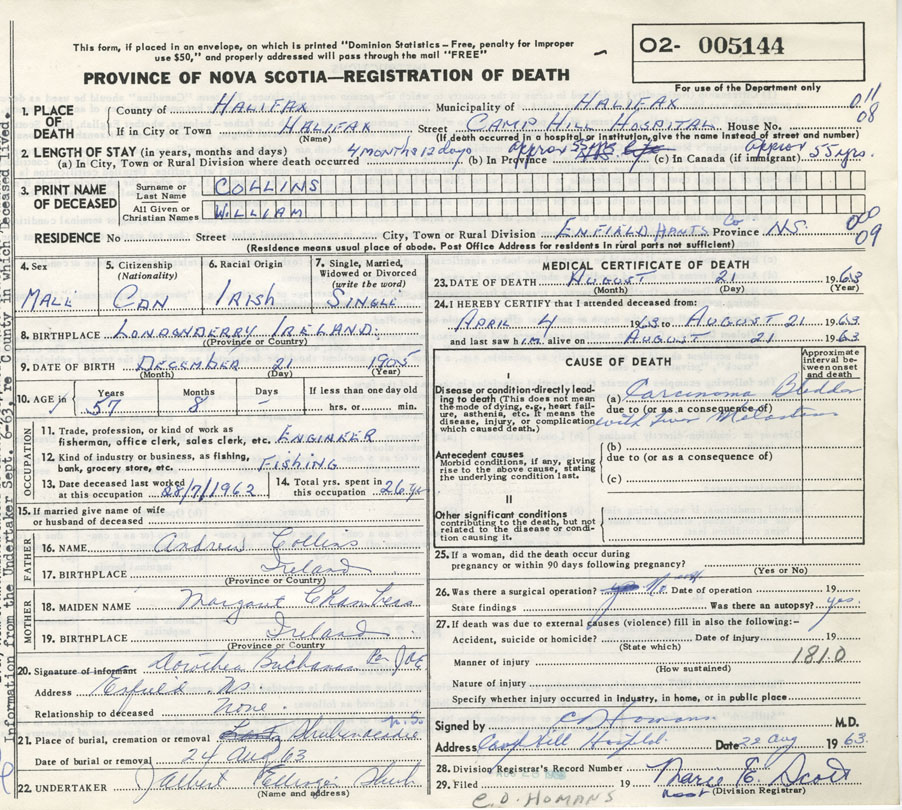 This form, if placed in an envelope, on which is printed "Dominion Statistics – Free, penalty for improper
use $50," and properly addressed will pass through the mail "FREE"
O2- 005144
For use of the Department only
PROVINCE OF NOVA SCOTIA—REGISTRATION OF DEATH
1. PLACE OF DEATH
County of HALIFAX Municipality of HALIFAX 011
If in City or Town HALIFAX Street CAMP HILL HOSPITAL House No. 08
(Name) (If death occurred in a hospital or institution, give the name instead of street and number)
2. LENGTH OF STAY (in years, months and days)
(a) In City, Town or Rural Division where death occurred 4 MONTHS 12 days (b) In Province approx (c) In Canada (if immigrant) approx 55 yrs.
3. PRINT NAME OF DECEASED
Surname or Last Name COLLINS
All Given or Christian Names WILLIAM
RESIDENCE No Street City, Town or Rural Division ENFIELD HANTS Co. Province NS 00 09
(Residence means usual place of abode. Post Office Address for residents in rural parts not sufficient)
4. Sex MALE
5. Citizenship (Nationality) CAN
6. Racial Origin IRISH
7. Single, Married, Widowed or Divorced (write the word) SINGLE
8. BIRTHPLACE LONDONDERRY IRELAND
(Province or County)
9. DATE OF BIRTH DECEMBER 21 1905
(Month) (Day) (Year)
10. AGE in Years 57 Months 8 Days – If less than one day old hrs. or min.
OCCUPATION
11. Trade, profession, or kind of work as
fisherman, office clerk, sales clerk, etc. ENGINEER
12. Kind of industry or business, as fishing,
bank, grocery store, etc. FISHING
13. Date deceased last worked
at this occupation 28/7/1962
14. Total yrs. spent in
this occupation 26 yr
15. If married give name of wife
or husband of deceased
FATHER
16. NAME Andrew Collins
17. BIRTHPLACE Ireland
(Province or Country)
MOTHER
18. MAIDEN NAME Margaret Chambers
19. BIRTHPLACE Ireland
(Province or Country)
20. Signature of informant Dorothea Buchanan
Address Enfield NS.
Relationship to deceased None
21. Place of burial, cremation or removal Shubenacadie N.S.
Date of burial or removal 24 AUG 63
22. UNDERTAKER
(Name and address)
MEDICAL CERTIFICATE OF DEATH
23. DATE OF DEATH AUGUST 21 1963
(Month) (Day) (Year)
24. I HEREBY CERTIFY that I attended deceased from:
APRIL 4 1963 to AUGUST 21 1963
and last saw him alive on AUGUST 21 1963
CAUSE OF DEATH
Approximate interval between onset and death
I
Disease or condition directly leading to death (This does not mean the mode of dying, e.g., heart failure, asthenia, etc. It means the disease, injury, or complication which caused death.)
(a) Carcinoma Bladder
due to (or as a consequence of)
with Liver Metastasis
Antecedent causes
Morbid conditions, if any, giving rise to the above cause, stating the underlying condition last.
(b)
due to (or as a consequence of)
(c)
II
Other significant conditions
contributing to the death, but not related to the disease or condition causing it.
25. If a woman, did the death occur during
pregnancy or within 90 days following pregnancy?
(Yes or No)
26. Was there a surgical operation? Date of operation 19
State findings Was there an autopsy? yes
27. If death was due to external causes (violence) fill in also the following:–
Accident, suicide or homicide? Date of injury 19
(State which)
Manner of injury 181.0
(How sustained)
Nature of injury
Specify whether injury occurred in industry, in home, or in public place
Signed by CD Homans M.D.
Address Camp Hill Hospital Date 22 Aug 1963
28. Division Registrar's Record Number
29. Filed 19 Marie E. Scott
(Division Registrar)
C. D. HOMANS